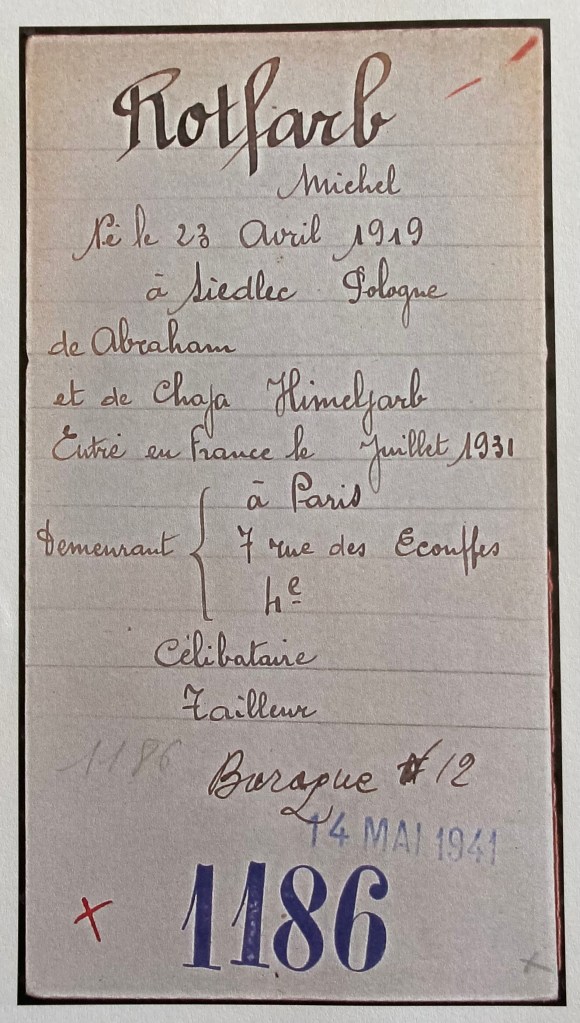 Rotfarb
Michel
Né le 23 Avril 1919
à Siedlec Pologne
de Abraham
et de Chaja Himelfarb
Entré en France le Juillet 1931
à Paris
Demeurant { 7 rue des Ecouffes
4e
Célibataire
Tailleur
1186
Baraque # 12
14 MAI 1941
1186